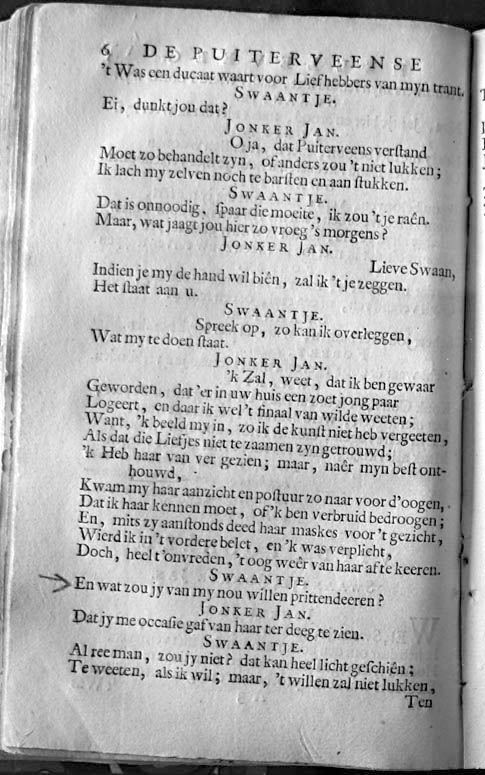 6 DE PUITERVEENSE
't Was een ducaat waart voor Liefhebbers van myn trant.
SWAANTJE.
Ei, dunkt jou dat?
JONKER JAN.
O ja, dat Puiterveens verstand
Moet zo behandelt zyn, of anders zou 't niet lukken;
Ik lach my zelven noch te barsten en aan stukken.
SWAANTJE.
Dat is onnoodig, spaar die moeite, ik zou 't je raên.
Maar, wat jaagt jou hier zo vroeg 's morgens?
JONKER JAN.
Lieve Swaan,
Indien je my de hand wil biên, zal ik 't je zeggen.
Het staat aan u.
SWAANTJE.
Spreek op, zo kan ik overleggen,
Wat my te doen staat.
JONKER JAN.
'k Zal, weet, dat ik ben gewaar
Geworden, dat 'er in uw huis een zoet jong paar
Logeert, en daar ik wel 't finaal van wilde weeten;
Want, 'k beeld my in, zo ik de kunst niet heb vergeeten,
Als dat die Liefjes niet te zaamen zyn getrouwd;
'k Heb haar van ver gezien; maar, naêr myn best ont-
houwd,
Kwam my haar aanzicht en postuur zo naar voor d'oogen,
Dat ik haar kennen moet, of 'k ben verbruid bedroogen;
En, mits zy aanstonds deed haar maskes voor 't gezicht,
Wierd ik in 't vordere belet, en 'k was verplicht,
Doch, heel t'onvreden, 't oog weêr van haar af te keeren.
SWAANTJE.
En wat zou jy van my nou willen prittendeeren?
JONKER JAN.
Dat jy me occasie gaf van haar ter deeg te zien.
SWAANTJE.
Al ree man, zou jy niet? dat kan heel licht geschiên;
Te weeten, als ik wil; maar, 't willen zal niet lukken,
Ten